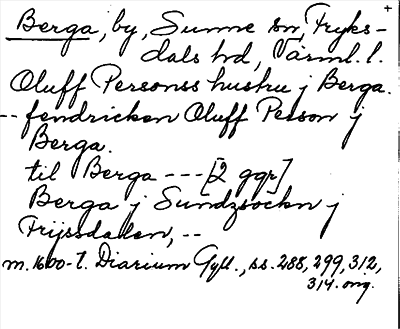 +
Berga, by, Sunne sn, Fryks-
dals hd, Värml. l.
Oluff Personss hustru j Berga.
-- fendricken Oluff Persson j
Berga.
til Berga --- [2 ggr]
Berga j Sundzsockn j
Frijssdalen, --
m. 1600-t. Diarium Gyll., ss. 288, 299, 312,
314. orig.